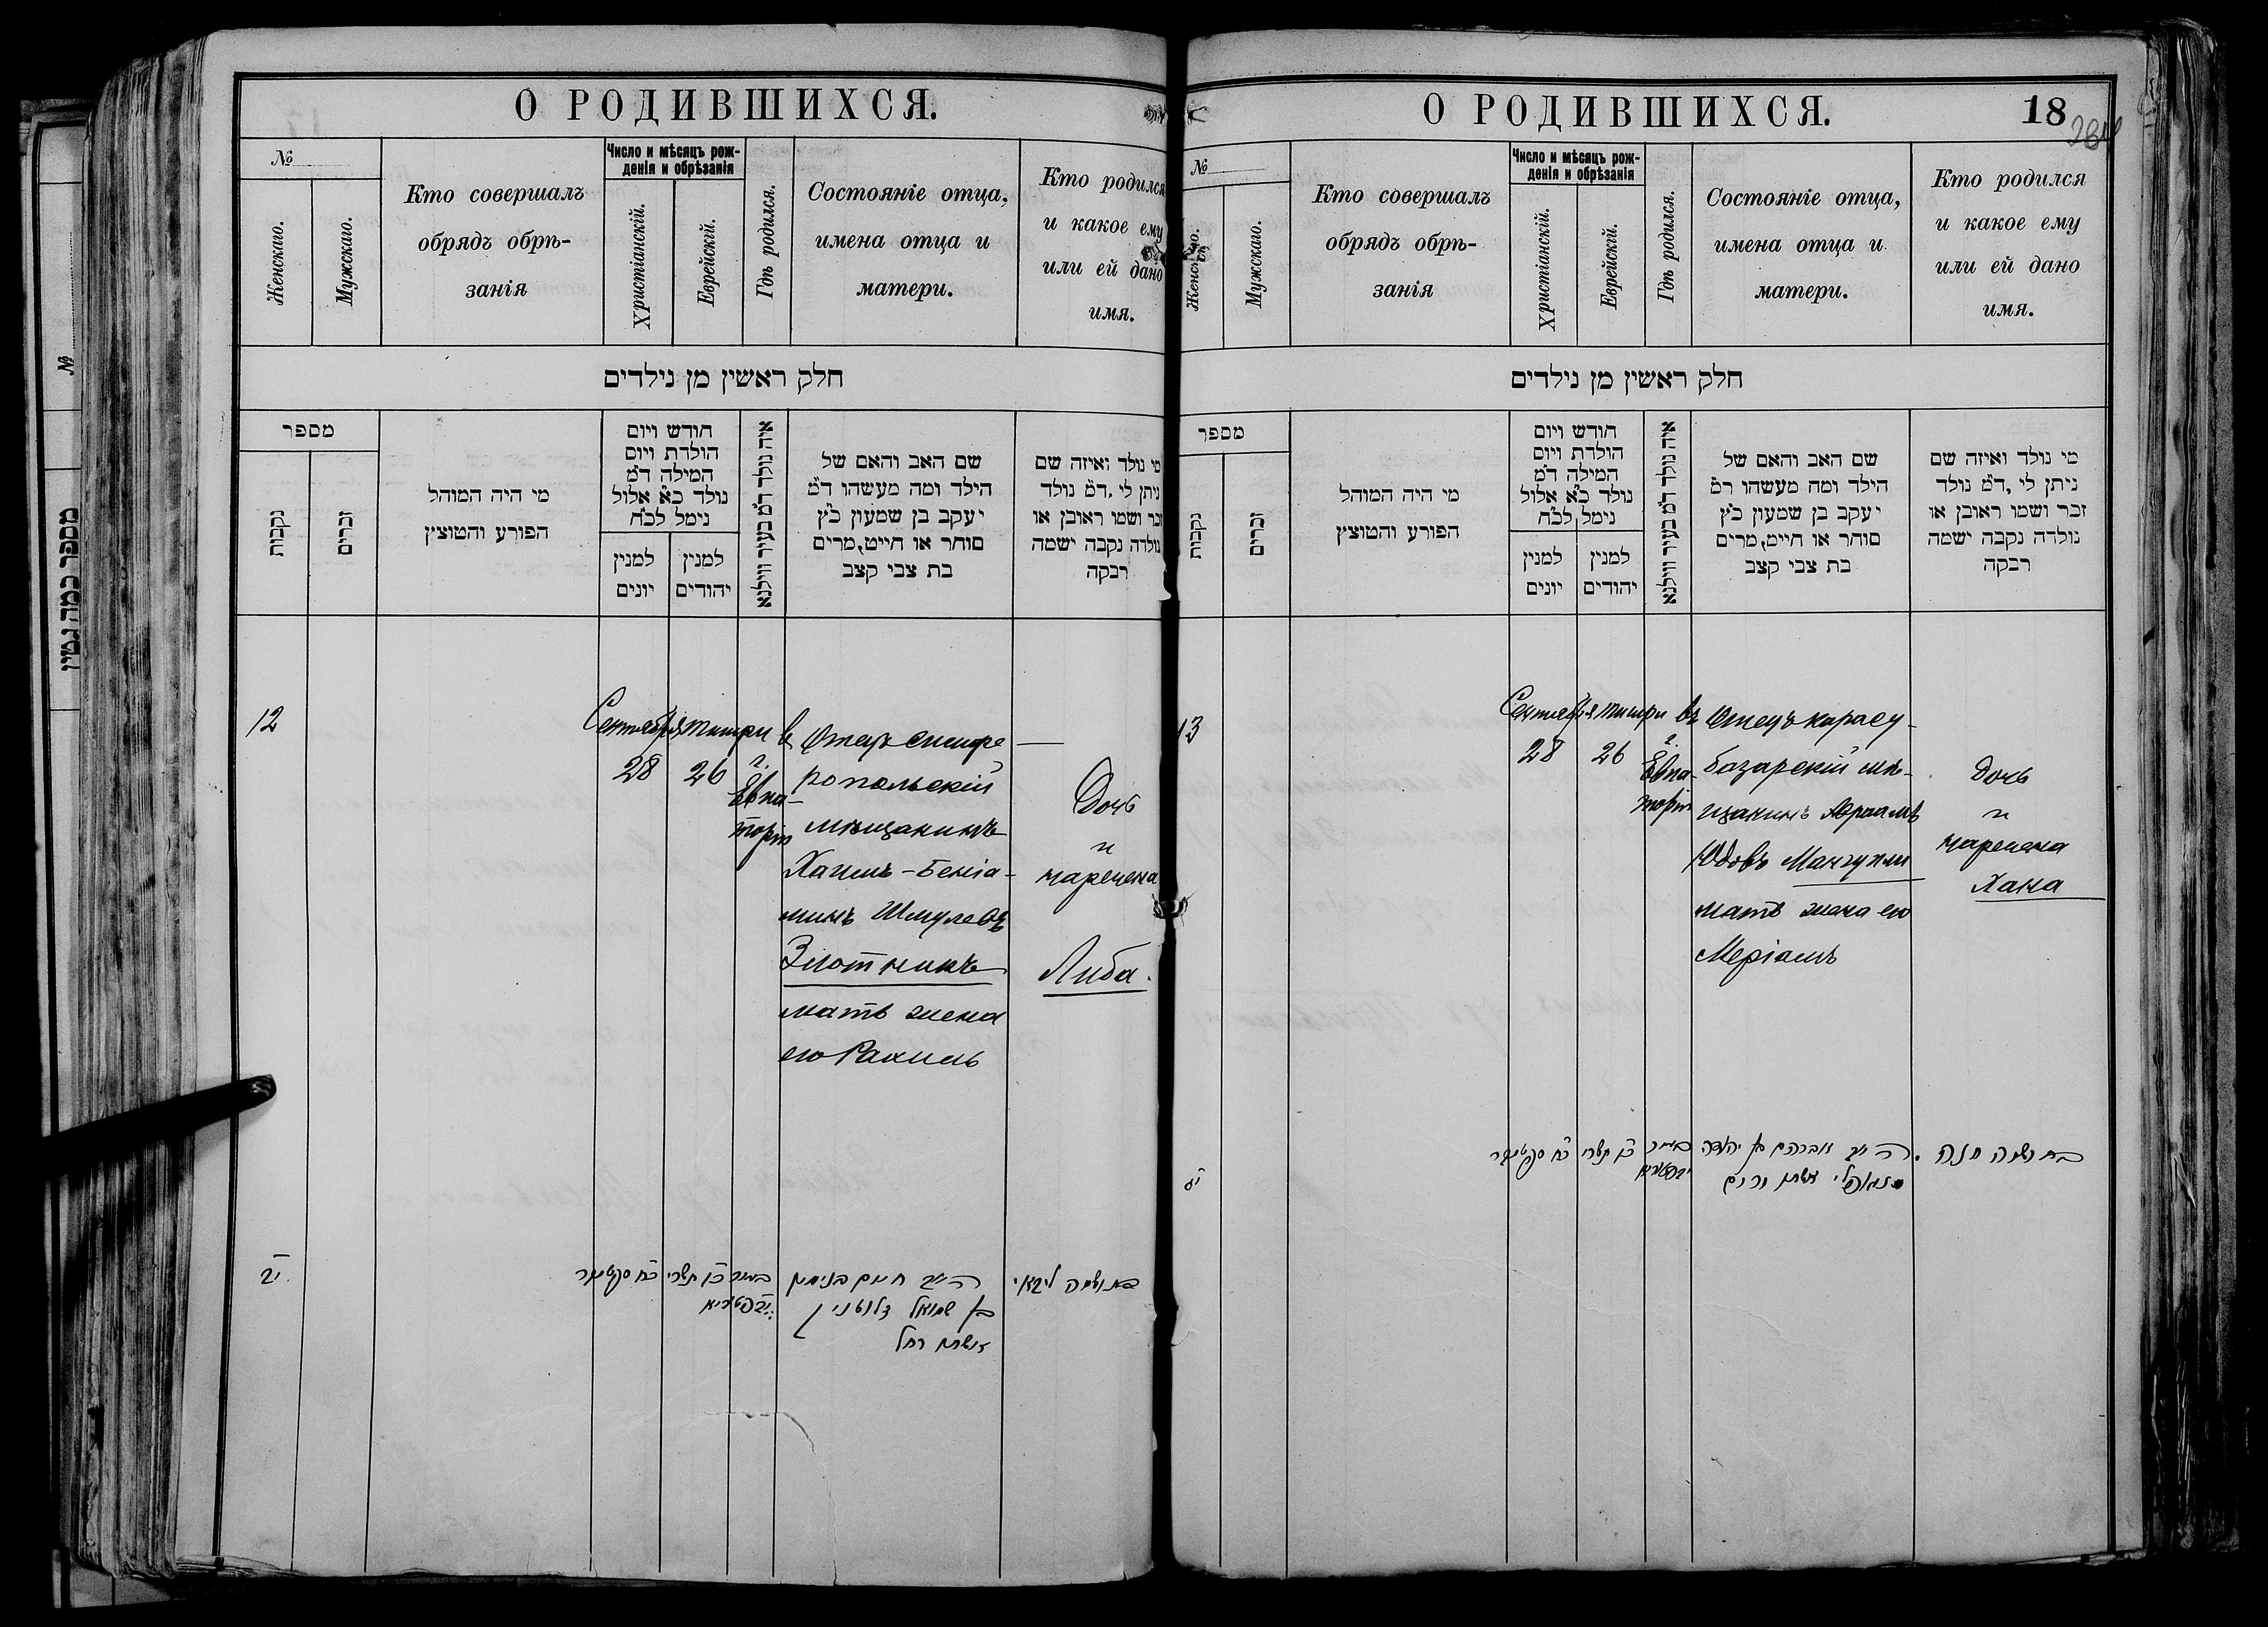 О РОДИВШИХСЯ.
№
Женскаго.
Мужскаго.
Кто совершалъ
обрядъ обрѣ-
занія
Число и мѣсяцъ рож-
денія и обрѣзанія
Христіанскій.
Еврейскій.
Гдѣ родился.
Состояніе отца,
имена отца и
матери.
Кто родился
и какое ему
или ей дано
имя.
חלק ראשין מן נילדים
מספר
נקבות
זכרים
מי היה המוהל
הפורע והמוצץ
חודש ויום
הולדת ויום
המילה ד״מ
נולד כ״א אלול
נימל לכ״ח
למנין
יונים
למנין
יהודים
איה נולד ד״מ בעיר ווילנא
שם האב והאם של
הילד ומה מעשהו ד״מ
יעקב בן שמעון כ״ץ
סוחר או חייט, מרים
בת צבי קצב
מי נולד ואיזה שם
ניתן לי, ד״מ נולד
זכר ושמו ראובן או
נולדה נקבה ישמה
רבקה
12
Сентября
28
тишри
26
в
г.
Евпа-
торіи
Отецъ симфе
ропольскій
мѣщанинъ
Хаимъ-Беніа-
минъ Шмулевъ
Злотникъ
мать жена
его Рахиль
Дочь
и
наречена
Либа.
יב
כח ספטימבר
כו תשרי
בעיר
יבפטוריא
חיים בנימין
בן שמואל זלוטניק
אשתו רחל
בת ושמה ליבא
О РОДИВШИХСЯ.
18
284
№
Женскаго.
Мужскаго.
Кто совершалъ
обрядъ обрѣ-
занія
Число и мѣсяцъ рож-
денія и обрѣзанія
Христіанскій.
Еврейскій.
Гдѣ родился.
Состояніе отца,
имена отца и
матери.
Кто родился
и какое ему
или ей дано
имя.
חלק ראשין מן נילדים
מספר
נקבות
זכרים
מי היה המוהל
הפורע והמוצץ
חודש ויום
הולדת ויום
המילה ד״מ
נולד כ״א אלול
נימל לכ״ח
למנין
יונים
למנין
יהודים
איה נולד ד״מ בעיר ווילנא
שם האב והאם של
הילד ומה מעשהו ד״מ
יעקב בן שמעון כ״ץ
סוחר או חייט, מרים
בת צבי קצב
מי נולד ואיזה שם
ניתן לי, ד״מ נולד
זכר ושמו ראובן או
נולדה נקבה ישמה
רבקה
13
Сентября
28
тишри
26
въ
г.
Евпа-
торіи
Отецъ карасу-
базарскій мѣ-
щанинъ Авраамъ
Юдовъ Мангупли
мать жена его
Меріамъ
Дочь
и
наречена
Хана
יג
כח ספטימבר
כו תשרי
בעיר
יבפטוריא
אברהם בן יהודה
מנגופלי אשתו מרים
בת ושמה חנה